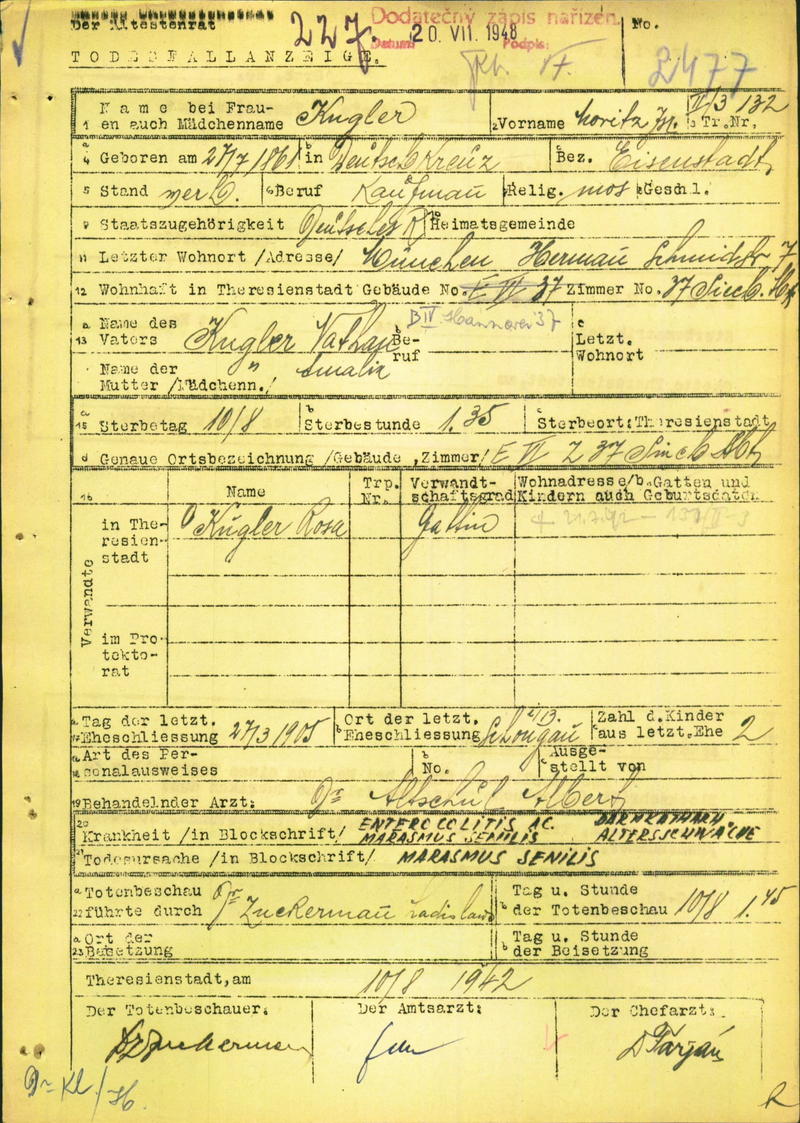 Der Ältestenrat
227.
Dodatečný zápis nařízen.
Datum: 20. VII. 1948 Podpis:
No.
TODESFALLANZEIGE.
2477
1 Name bei Frauen auch Mädchenname Kugler 2 Vorname Moritz Isr. 3 Tr.Nr. II/3 132
4 a Geboren am 27/7/1861 b in Deutschkreuz c Bez. Eisenstadt
5 Stand verh. 6 Beruf Kaufmann 7 Relig. mos 8 Geschl.
9 Staatszugehörigkeit Deutsches R. 10 Heimatsgemeinde
11 Letzter Wohnort /Adresse/ München Herman Schmidstr 7
12 Wohnhaft in Theresienstadt Gebäude No. E VI 37 Zimmer No. 37 Siech. Abt
B IV Hannover 37
13 a Name des Vaters Kugler Nathan b Beruf c Letzt. Wohnort
Name der Mutter /Mädchenn./ " Amalie
15 a Sterbetag 10/8 b Sterbestunde 1.35 c Sterbeort: Theresienstadt
d Genaue Ortsbezeichnung /Gebäude, Zimmer/ E VI Z 37 Siech Abt
16 Name Trp. Nr. Verwandtschaftsgrad Wohnadresse/b.Gatten und Kindern auch Geburtsdaten
Verwandte
in Theresienstadt Kugler Rosa Gattin
im Protektorat
17 a Tag der letzt. Eheschliessung 27/3 1905 b Ort der letzt. Eheschliessung Schongau Zahl d.Kinder aus letzt.Ehe 2
18 a Art des Personalausweises b No. c Ausgestellt von
19 Behandelnder Arzt: Dr Altschul Albert
20 Krankheit /in Blockschrift/ ENTEROCOLITIS AC. DARMKATARRH.
MARASMUS SENILIS ALTERSSCHWÄCHE
21 Todesursache /in Blockschrift/ MARASMUS SENILIS
22 a Totenbeschau führte durch Dr Zuckerman Ladislaus b Tag u. Stunde der Totenbeschau 10/8 1.45
23 a Ort der Beisetzung b Tag u. Stunde der Beisetzung
Theresienstadt, am 10/8 1942
Der Totenbeschauer: Der Amtsarzt: Der Chefarzt:
Dr Zuckerman
Dr Kl/H.